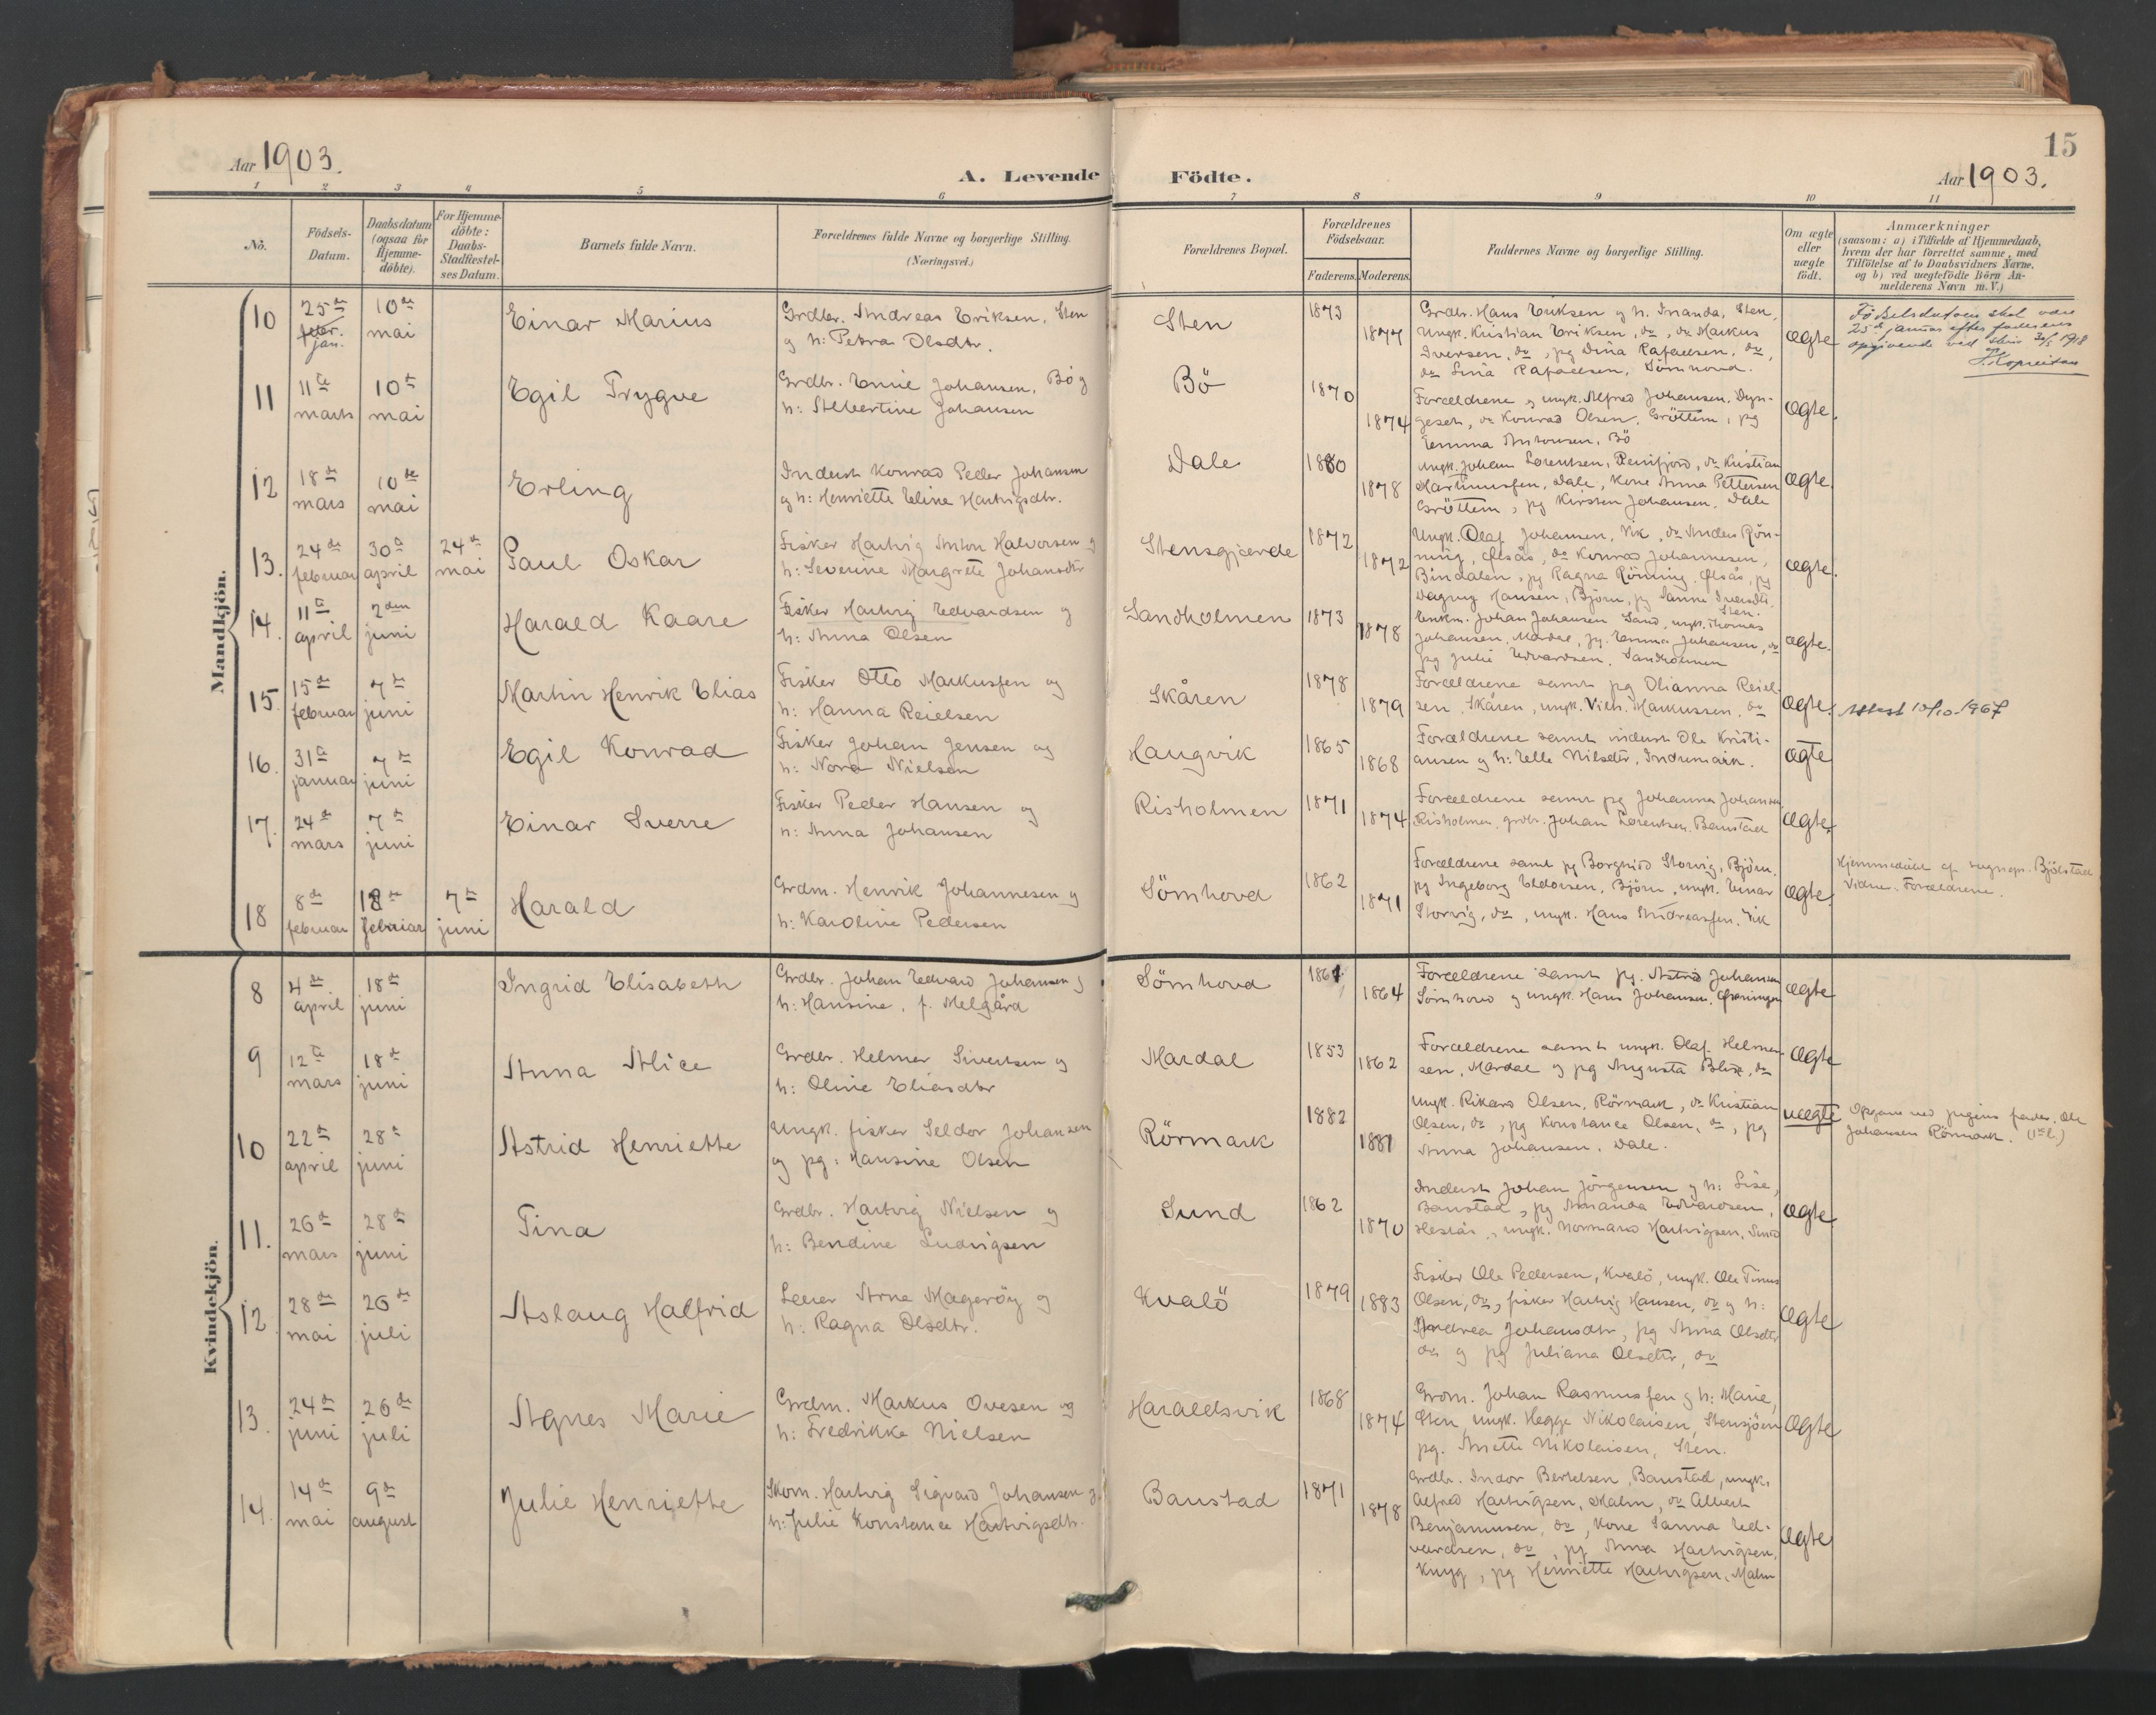 15
Aar 1903.
A. Levende Födte.
Aar 1903.
1 2 3 4 5 6 7 8 9 10 11
No.
Födsels-
Datum.
Daabsdatum
(ogsaa for
Hjemme-
döbte).
For Hjemme-
döbte:
Daabs-
Stadfæstel-
ses Datum.
Barnets fulde Navn.
Forældrenes fulde Navne og borgerlige Stilling.
(Næringsvei.)
Forældrenes Bopæl.
Forældrenes
Födselsaar.
Faderens. Moderens.
Faddernes Navne og borgerlige Stilling.
Om ægte
eller
uægte
födt.
Anmærkninger
(saasom: a) i Tilfælde af Hjemmedaab,
hvem der har forrettet samme, med
Tilföielse af to Daabsvidners Navne,
og b) ved uægtefödte Börn An-
melderens Navn m.V.)
Mandkjön.
10
25de
febr.
jan.
10de
mai
Einar Marius
Grdbr. Andreas Eriksen, Sten
og h: Petra Olsdtr.
Sten
1873
1877
Grdbr. Hans Eriksen og h. Inanda, Sten,
Ungk. Kristian Eriksen, do, do Markus
Iversen, do, pg Dina Rafaelsen, do,
do Lina Rafaelsen, Sömhovd.
ægte
Födselsdatoen skal være
25de januar efter faderens
opgivende ved skriv 30/5 1918
11
11te
marts
10de
mai
Egil Trygve
Grdbr. Emil Johansen, Bö og
h: Albertine Johansen
Bö
1870
1874
Forældrene og ungk. Alfred Johansen, Dyn-
geseth, do Konrad Olsen, Gröttem, pg
Emma Antonsen, Bö
ægte.
12
18de
mars
10de
mai
Erling
Inderst Konrad Peder Johansen
og h: Henriette Eline Hartvigsdtr.
Dale
1880
1878
Ungk. Johan Lorentsen, Reinfjord, do Kristian
Martinussen, Dale, Kone Anna Pettersen
Gröttem, pg Kirsten Johansen, Dale
ægte.
13.
24de
februar
30te
april
24de
mai
Paul Oskar
Fisker Hartvig Anton Halvorsen og
h: Severine Margrete Johansdtr
Stensgjærde
1872
1872
Ungk. Olaf Johansen, Vik, do Anders Rön-
ning, Ölsås, do Konrad Johannesen,
Bindalen, pg Ragna Rönning, Ölsås, pg
Dagny Hansen, Björn, pg Sanna Iversdtr.
Sten.
ægte.
14.
11te
april
2den
juni
Harald Kaare
Fisker Hartvig Edvardsen og
h: Anna Olsen
Sandholmen
1873
1878
Enkm. Johan Johansen Sand, ungk. Thomas
Johansen, Mardal, pg. Emma Johansen, do
pg Julie Edvardsen, Sandholmen
ægte.
15.
15de
februar
7de
juni
Martin Henrik Elias
Fisker Otto Markussen og
h: Hanna Reielsen
Skåren
1878
1879
Forældrene samt pg Olianna Reiel-
sen, Skåren, ungk. Vilh. Markussen, do
ægte.
Attest 10/10-1967
16.
31te
januar
7de
juni
Egil Konrad
Fisker Johan Jensen og
h: Nora Nielsen
Haugvik
1865
1868
Forældrene samt inderst Ole Kristi-
ansen og h: Elle Nilsdtr, Indremark.
ægte
17.
24de
mars
7de
juni
Einar Sverre
Fisker Peder Hansen og
h: Anna Johansen
Risholmen
1871
1874
Forældrene samt pg Johanna Johansen
Risholmen, grdbr. Johan Lorentsen, Baustad
ægte.
18
8de
februar
18de
februar
7de
juni
Harald
Grdm. Henrik Johannesen og
h: Karoline Pedersen
Sömhovd
1862
1871
Forældrene samt pg Borghild Storvig, Björn,
pg Ingeborg Eldorsen, Björn, ungk. Einar
Storvig, do, ungk. Hans Andreassen, Vik
ægte.
Hjemmedöbt af sognepr. Bjölstad
Vidne: Forældrene.
Kvindekjön.
8
4de
april
18de
juni
Ingrid Elisabeth
Grdbr. Johan Edvard Johansen og
h: Hansine, f. Melgård
Sömhovd
1861
1864
Forældrene samt pg. Astrid Johansen
Sömhovd og ungk. Hans Johansen,
ægte
9
12te
mars
18de
juni
Anna Alice
Grdbr. Helmer Sivertsen og
h: Oline Eliasdtr
Mardal
1853
1862
Forældrene samt ungk. Olaf Helmer-
sen, Mardal og pg Augusta Blix, do
ægte
10
22de
april
28de
juni
Astrid Henriette
Ungk. fisker Seldor Johansen
og pg: Hansine Olsen
Rörmark
1882
1881
Ungk. Rikard Olsen, Rörmark, do Kristian
Olsen, do, pg Konstance Olsen, do, pg
Anna Johansen, Dale.
uægte
Opgave ved pigens fader, Ole
Johansen Rörmark. (1ste l.)
11.
26de
mars
28de
juni
Tina
Grdbr. Hartvig Nielsen og
h: Bendine Ludvigsen
Sund
1862
1870
Inderst Johan Jörgensen og h: Lise,
Baustad, pg Amanda Edvardsen,
Hestås, ungk. Normand Hartvigsen, Sund
ægte
12
28de
mai
26de
juli
Aslaug Halfrid
Lærer Arne Mageröy og
h: Ragna Olsdtr.
Kvalö
1879
1883
Fisker Ole Pedersen, Kvalö, ungk. Ole Tinus
Olsen, do, fisker Hartvig Hansen, do og h:
Andrea Johansdtr, pg Anna Olsdtr
do og pg Juliana Olsdtr, do
ægte
13.
24de
juni
26de
juli
Agnes Marie
Grdm. Markus Ovesen og
h: Fredrikke Nielsen
Haraldsvik
1868
1874
Grdm. Johan Rasmussen og h: Marie,
Sten, ungk. Hegge Nikolaisen, Stensjöen
pg. Anette Nikolaisen, Sten.
ægte
14.
14de
mai
9de
august
Julie Henriette
Skom. Hartvig Sigvard Johansen og
h: Julie Konstance Hartvigsdtr.
Baustad
1871
1878
Grdbr. Indor Bertelsen, Baustad, ungk.
Alfred Hartvigsen, Malm, do Albert
Benjaminsen, do, Kone Sanna Ed-
vardsen, do, pg Anna Hartvigsen,
pg Henriette Hartvigsen, Malm
ægte